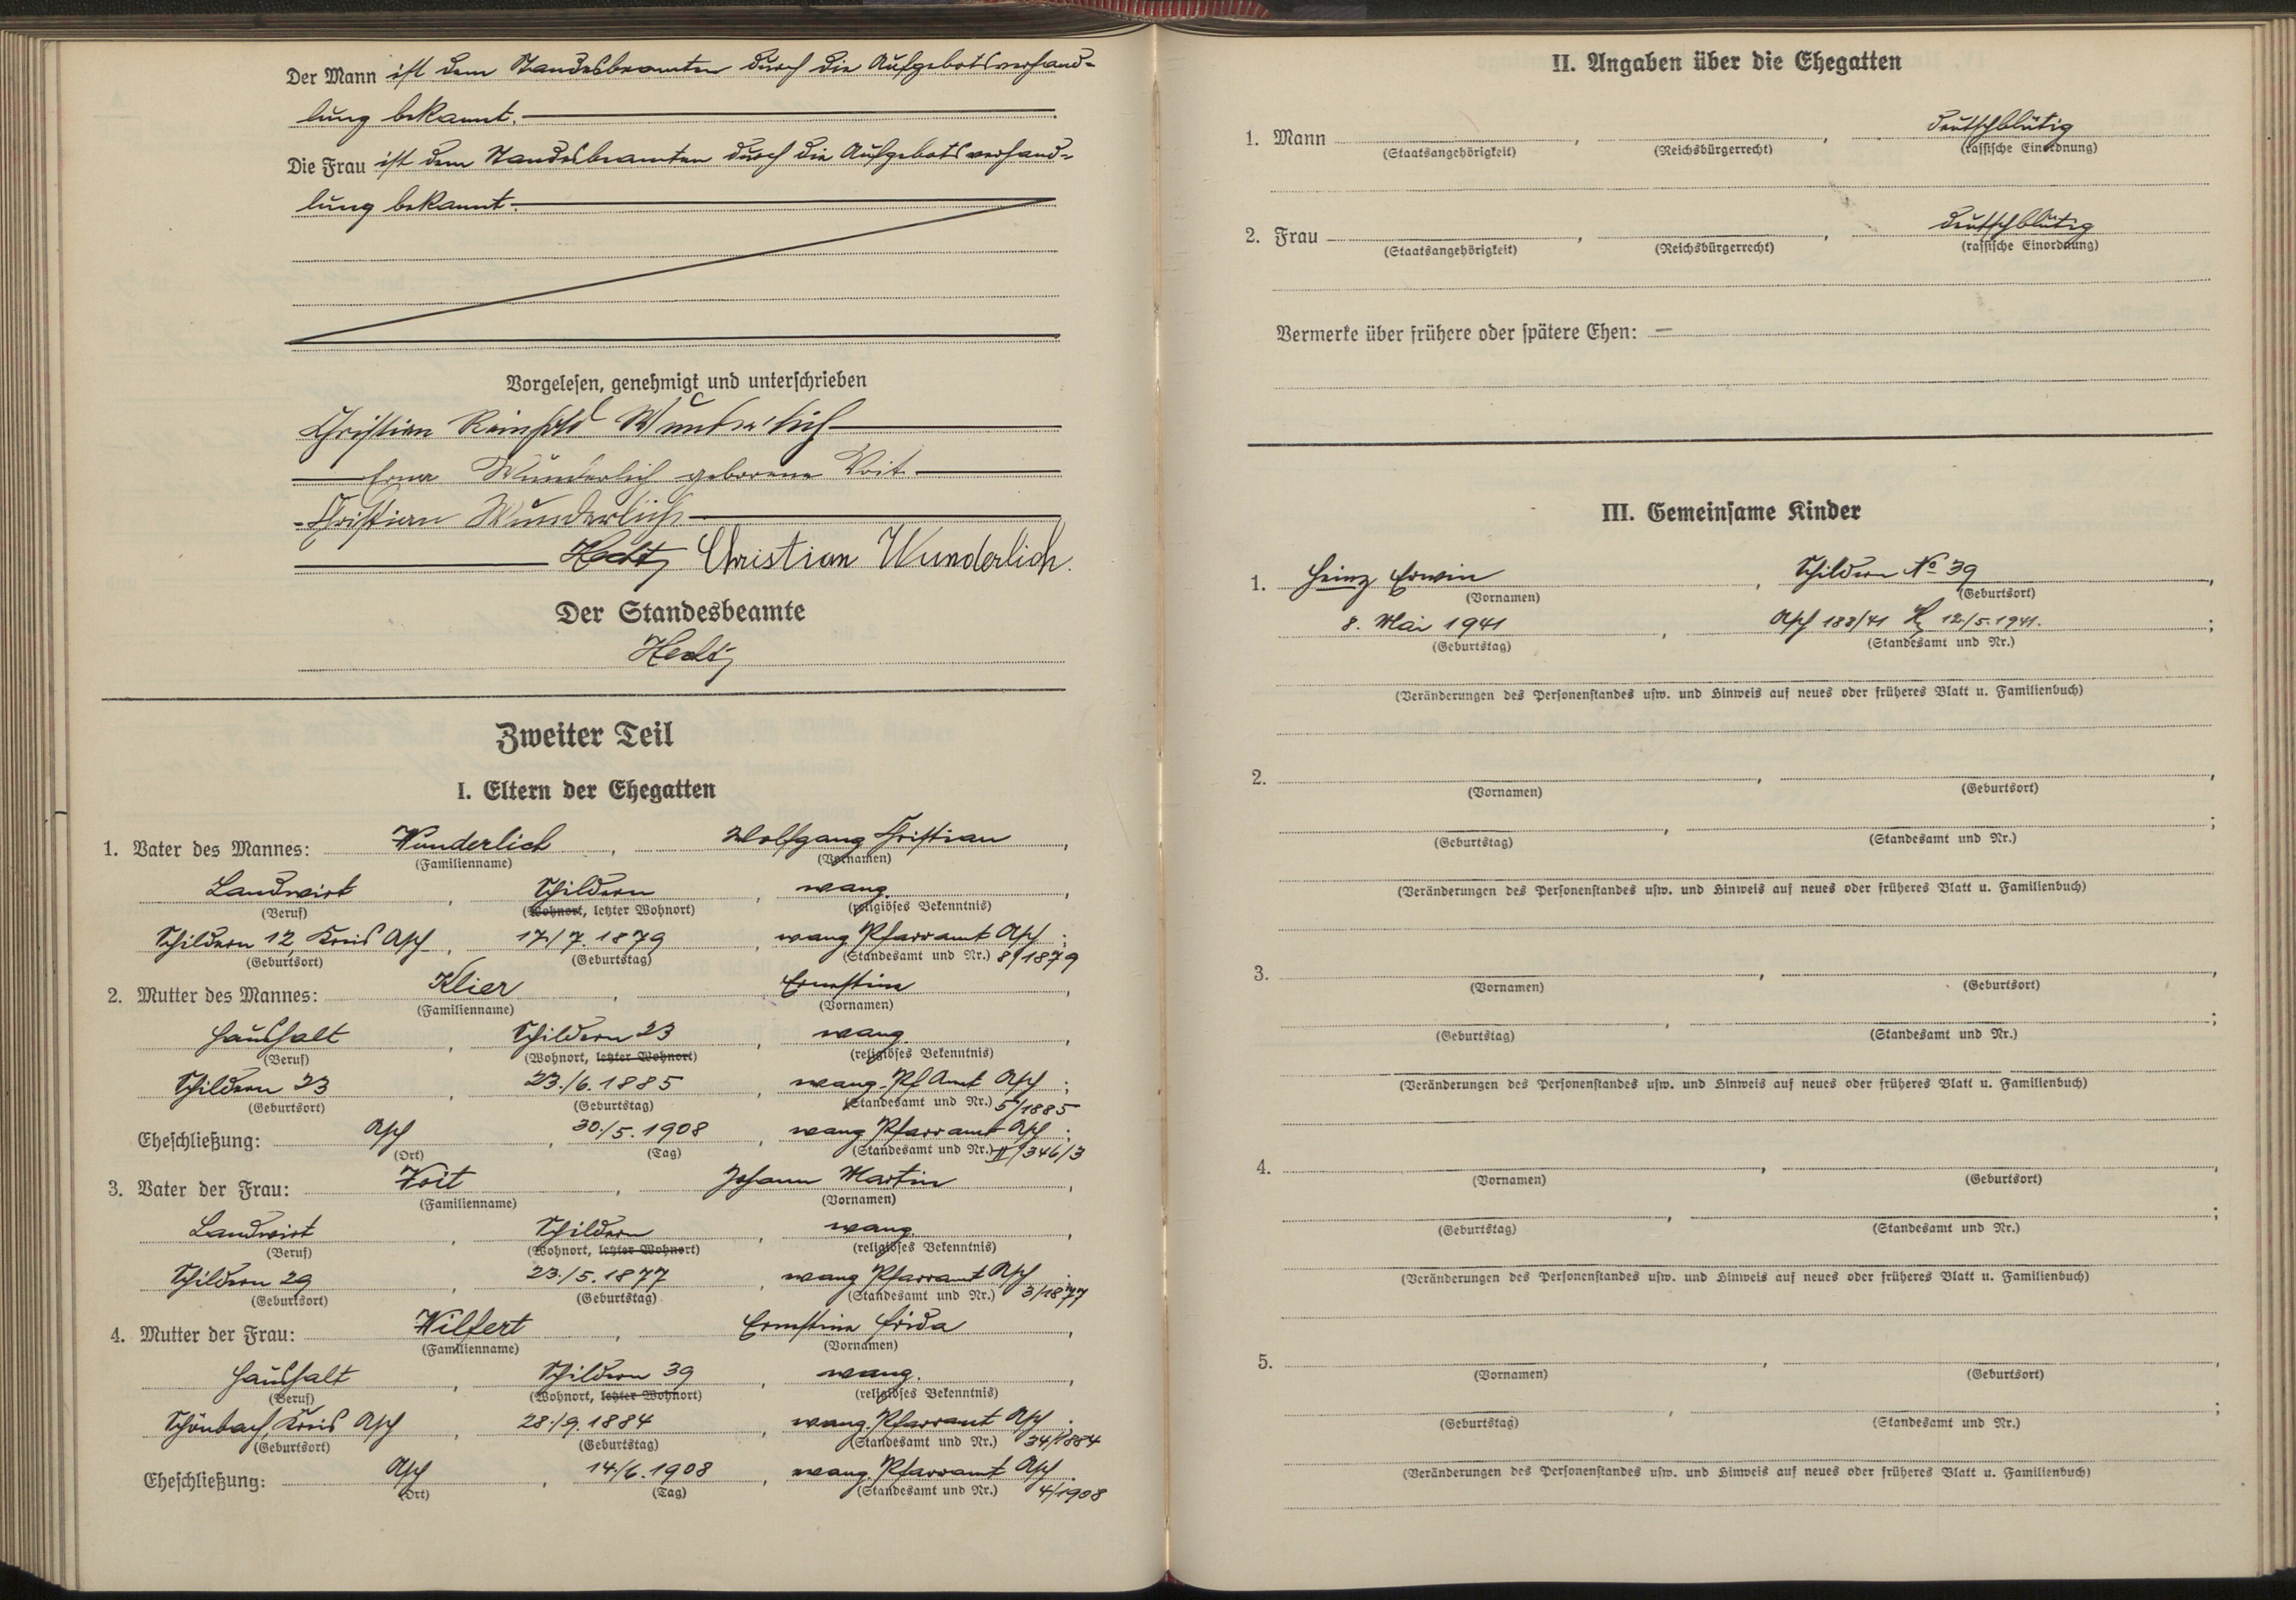 Der Mann ist dem Standesbeamten durch die Aufgebotsverhand-
lung bekannt.
Die Frau ist dem Standesbeamten durch die Aufgebotsverhand-
lung bekannt.
Vorgelesen, genehmigt und unterschrieben
Christian Reinhold Wunderlich
Erna Wunderlich geborene Voit
Christian Wunderlich
Christian Wunderlich.
Der Standesbeamte
Zweiter Teil
I. Eltern der Ehegatten
1. Vater des Mannes: Wunderlich, Wolfgang Christian,
(Familienname) (Vornamen)
Landwirt, Schildern, evang.,
(Beruf) (Wohnort, letzter Wohnort) (religiöses Bekenntnis)
Schildern 12, Kreis Asch, 17./7.1879, evang Pfarramt Asch;
(Geburtsort) (Geburtstag) (Standesamt und Nr.) 8/1879
2. Mutter des Mannes: Klier, Ernstine,
(Familienname) (Vornamen)
Haushalt, Schildern 23, evang.,
(Beruf) (Wohnort, letzter Wohnort) (religiöses Bekenntnis)
Schildern 23, 23./6.1885, evang. Pf Amt Asch;
(Geburtsort) (Geburtstag) (Standesamt und Nr.) 5/1885
Eheschließung: Asch, 30./5.1908, evang Pfarramt Asch;
(Ort) (Tag) (Standesamt und Nr.) II/346/3
3. Vater der Frau: Voit, Johann Martin,
(Familienname) (Vornamen)
Landwirt, Schildern, evang.,
(Beruf) (Wohnort, letzter Wohnort) (religiöses Bekenntnis)
Schildern 29, 23./5.1877, evang Pfarramt Asch;
(Geburtsort) (Geburtstag) (Standesamt und Nr.) 3/1877
4. Mutter der Frau: Wilfert, Ernstine Frida,
(Familienname) (Vornamen)
Haushalt, Schildern 39, evang.,
(Beruf) (Wohnort, letzter Wohnort) (religiöses Bekenntnis)
Schönbach, Kreis Asch, 28./9.1884, evang. Pfarramt Asch;
(Geburtsort) (Geburtstag) (Standesamt und Nr.) 34/1884
Eheschließung: Asch, 14./6.1908, evang. Pfarramt Asch.
(Ort) (Tag) (Standesamt und Nr.) 4/1908
II. Angaben über die Ehegatten
1. Mann, , deutschblütig
(Staatsangehörigkeit) (Reichsbürgerrecht) (rassische Einordnung)
2. Frau, , deutschblütig
(Staatsangehörigkeit) (Reichsbürgerrecht) (rassische Einordnung)
Vermerke über frühere oder spätere Ehen: —
III. Gemeinsame Kinder
1. Heinz Erwin, Schildern No 39,
(Vornamen) (Geburtsort)
8. Mai 1941, Asch 188/41 12./5.1941.;
(Geburtstag) (Standesamt und Nr.)
(Veränderungen des Personenstandes usw. und Hinweis auf neues oder früheres Blatt u. Familienbuch)
2. , ,
(Vornamen) (Geburtsort)
, ;
(Geburtstag) (Standesamt und Nr.)
(Veränderungen des Personenstandes usw. und Hinweis auf neues oder früheres Blatt u. Familienbuch)
3. , ,
(Vornamen) (Geburtsort)
, ;
(Geburtstag) (Standesamt und Nr.)
(Veränderungen des Personenstandes usw. und Hinweis auf neues oder früheres Blatt u. Familienbuch)
4. , ,
(Vornamen) (Geburtsort)
, ;
(Geburtstag) (Standesamt und Nr.)
(Veränderungen des Personenstandes usw. und Hinweis auf neues oder früheres Blatt u. Familienbuch)
5. , ,
(Vornamen) (Geburtsort)
, ;
(Geburtstag) (Standesamt und Nr.)
(Veränderungen des Personenstandes usw. und Hinweis auf neues oder früheres Blatt u. Familienbuch)